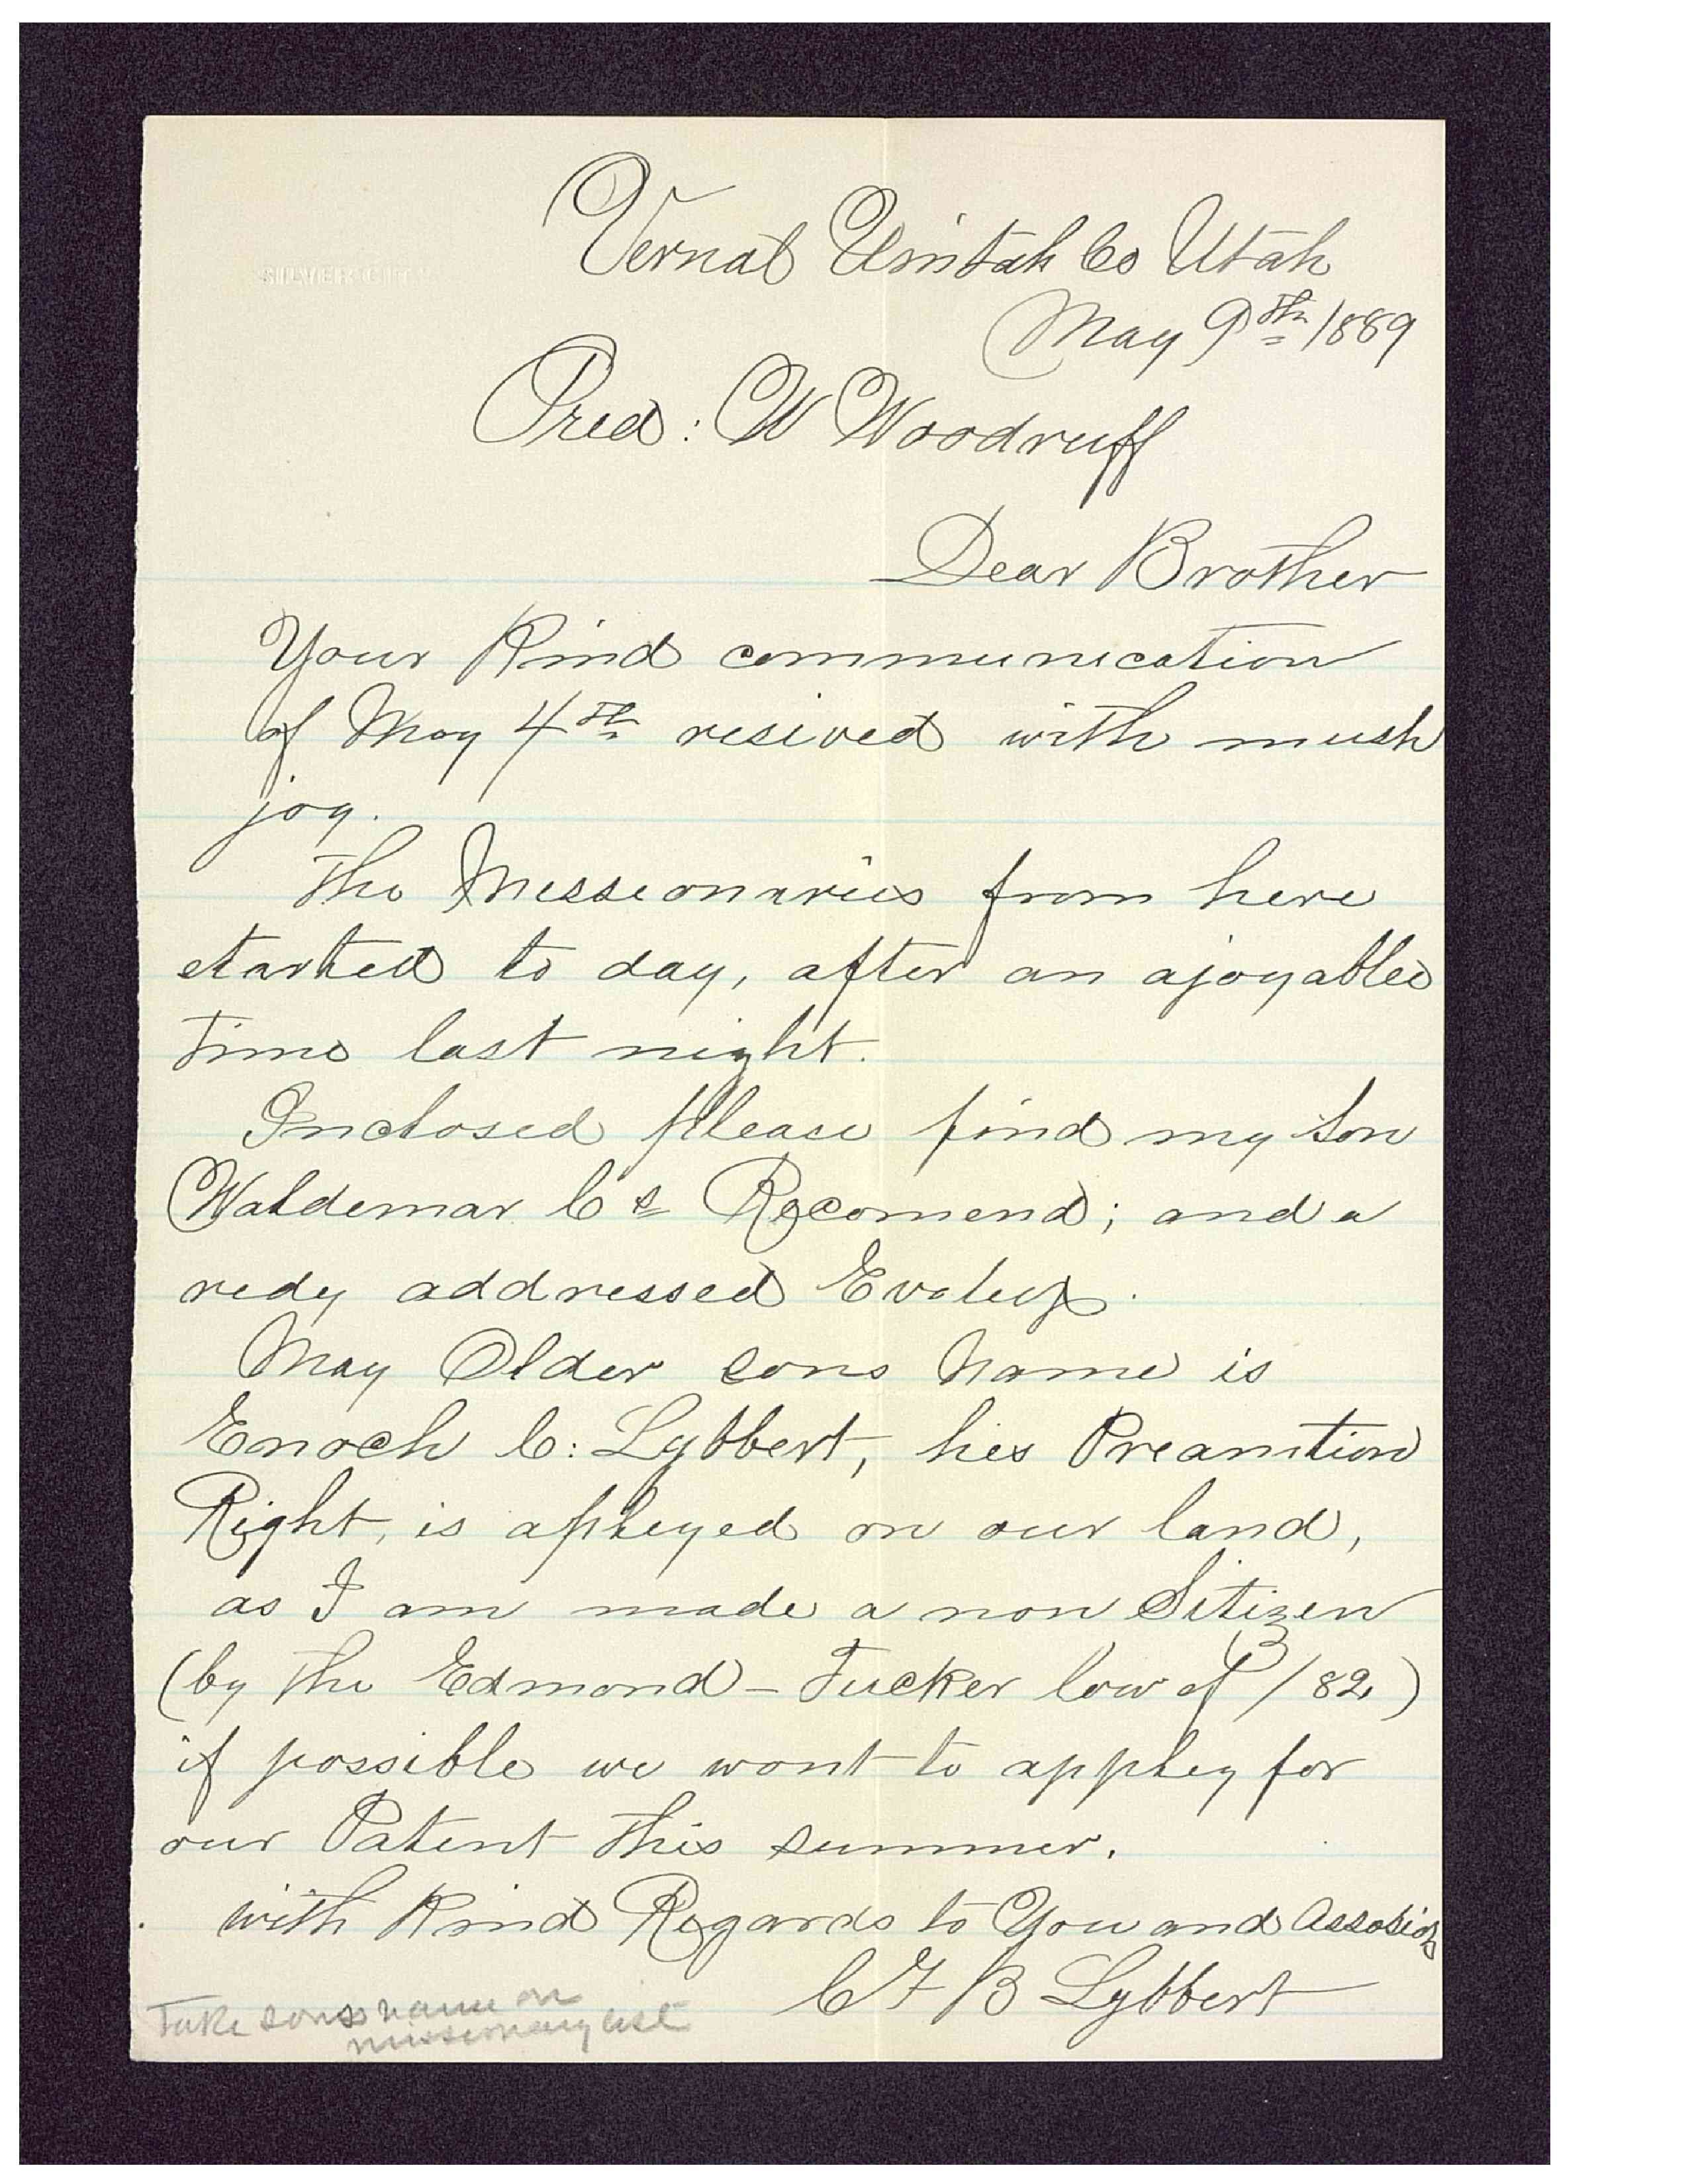 SILVER CITY
Vernal Uintah Co Utah
May 9th 1889
Pred: W Woodruff
Dear Brother
Your Kind communication
of May 4th resived with mush
joy.
The Messionaries from here
started to day, after an ajoyable
time last night.
Inclosed please find my Son
Waldemar Cs Recomend; and a
redy addressed Evolup.
May Older sons Name is
Enoch C: Lybbert, his Preamtion
Right, is aplieyed on our land,
as I am made a non Sitizen
(by the Edmond - Tucker low of /82)
if possible we wont to appley for
our Patent this summer.
with Kind Regards to You and
C F B Lybbert
Take sons name on
missionary list